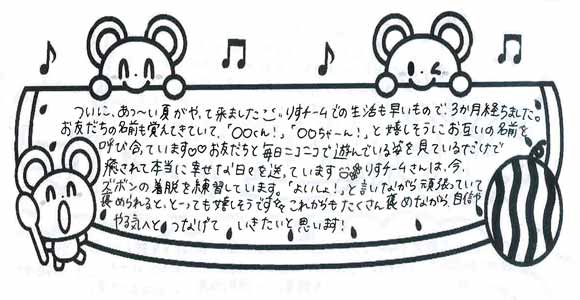 ついに、あっ〜い夏がやって来ました りすチームでの生活も早いもので、3か月経ちました。
お友だちの名前も覚えてきていて、「〇〇くん!」、「〇〇ちゃーん!」、と嬉しそうにお互いの名前を
呼び合っています♡♡お友だちと毎日ニコニコで遊んでいる姿を見ているだけで
癒されて本当に幸せな日々を送っています りすチームさんは、今、
ズボンの着脱を練習しています。「よいしょ!」と言いながら頑張っていて
褒められると、とっても嬉しそうです☆これからもたくさん褒めながら、自信や
やる気へと つなげて いきたいと思います!